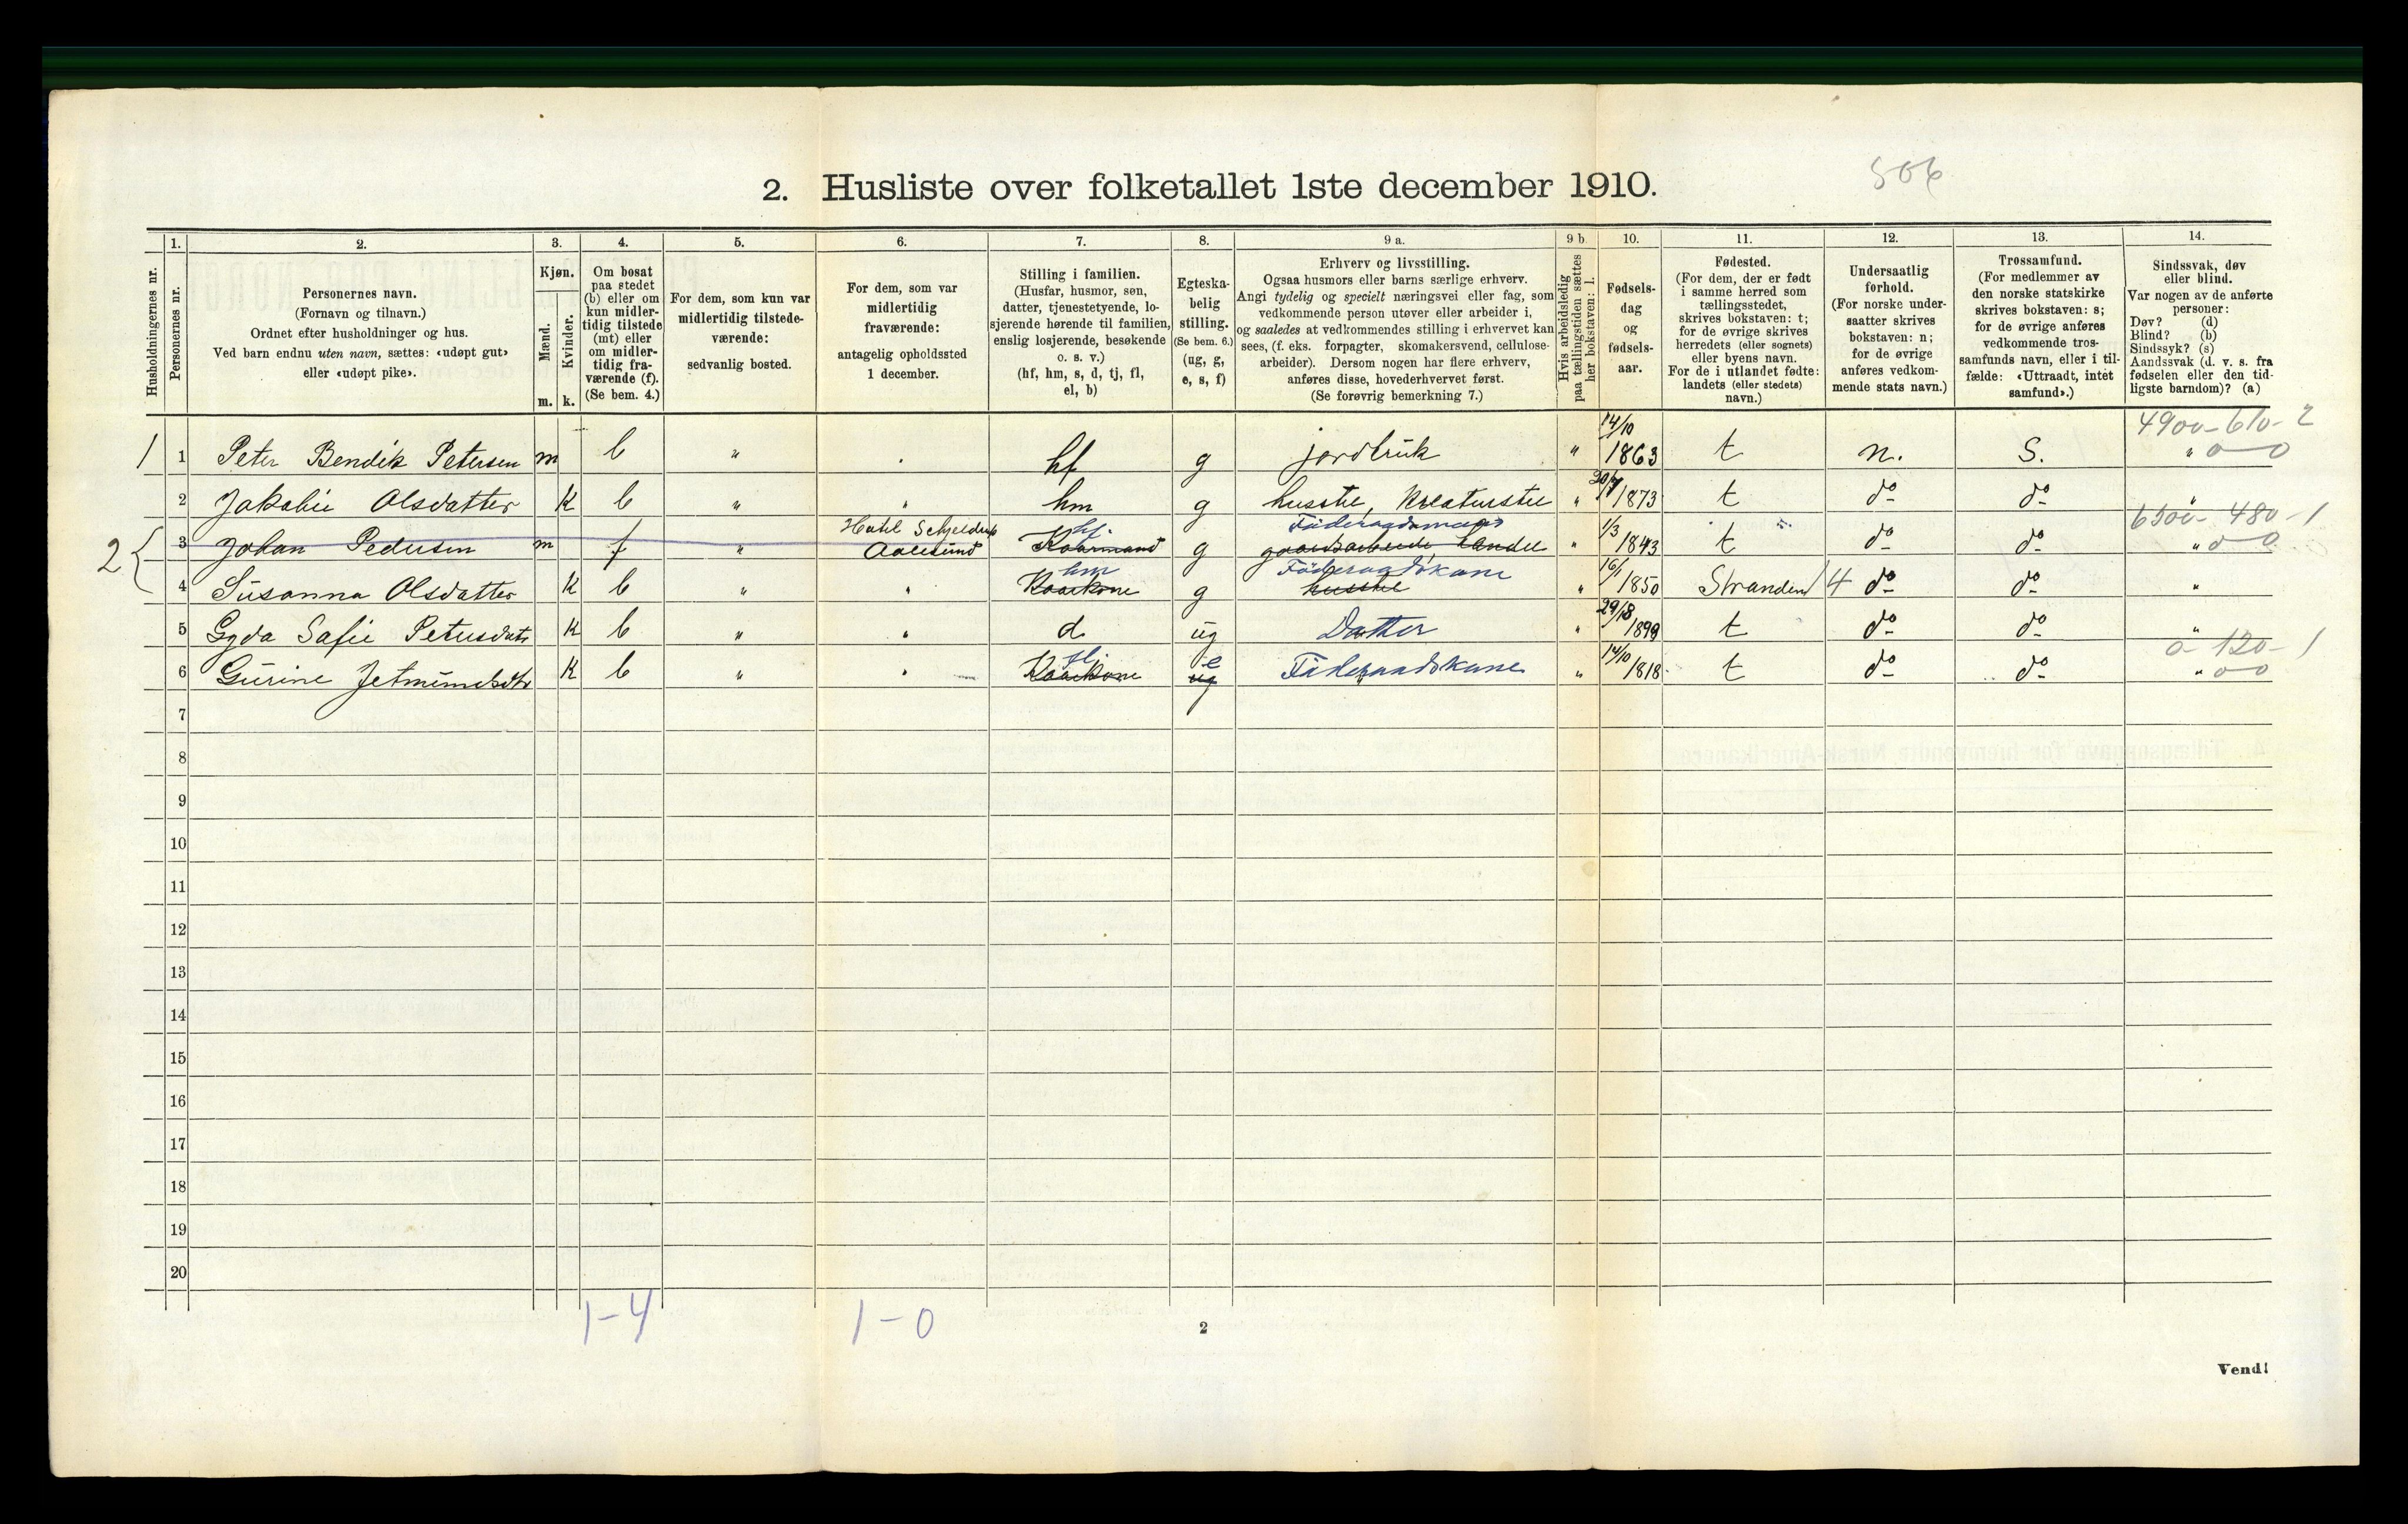 506
2. Husliste over folketallet 1ste december 1910.
Husholdningernes nr.
1.
Personernes nr.
2.
Personernes navn.
(Fornavn og tilnavn.)
Ordnet efter husholdninger og hus.
Ved barn endnu uten navn, sættes: «udøpt gut»
eller «udøpt pike».
3.
Kjøn.
Mænd.
Kvinder.
m. k.
4.
Om bosat
paa stedet
(b) eller om
kun midler-
tidig tilstede
(mt) eller
om midler-
tidig fra-
værende (f).
(Se bem. 4.)
5.
For dem, som kun var
midlertidig tilstede-
værende:
sedvanlig bosted.
6.
For dem, som var
midlertidig
fraværende:
antagelig opholdssted
1 december.
7.
Stilling i familien.
(Husfar, husmor, søn,
datter, tjenestetyende, lo-
sjerende hørende til familien,
enslig losjerende, besøkende
o. s. v.)
(hf, hm, s, d, tj, fl,
el, b)
8.
Egteska-
belig
stilling.
(Se bem. 6.)
(ug, g,
e, s, f)
9 a.
Erhverv og livsstilling.
Ogsaa husmors eller barns særlige erhverv.
Angi tydelig og specielt næringsvei eller fag, som
vedkommende person utøver eller arbeider i,
og saaledes at vedkommendes stilling i erhvervet kan
sees, (f. eks. forpagter, skomakersvend, cellulose-
arbeider). Dersom nogen har flere erhverv,
anføres disse, hovederhvervet først.
(Se forøvrig bemerkning 7.)
9 b.
Hvis arbeidsledig
paa tællingstiden sættes
her bokstaven: l.
10.
Fødsels-
dag
og
fødsels-
aar.
11.
Fødested.
(For dem, der er født
i samme herred som
tællingsstedet,
skrives bokstaven: t;
for de øvrige skrives
herredets (eller sognets)
eller byens navn.
For de i utlandet fødte:
landets (eller stedets)
navn.)
12.
Undersaatlig
forhold.
(For norske under-
saatter skrives
bokstaven: n;
for de øvrige
anføres vedkom-
mende stats navn.)
13.
Trossamfund.
(For medlemmer av
den norske statskirke
skrives bokstaven: s;
for de øvrige anføres
vedkommende tros-
samfunds navn, eller i til-
fælde: «Uttraadt, intet
samfund».)
14.
Sindssvak, døv
eller blind.
Var nogen av de anførte
personer:
Døv? (d)
Blind? (b)
Sindssyk? (s)
Aandssvak (d. v. s. fra
fødselen eller den tid-
ligste barndom)? (a)
4900-610-2
1 1 Peter Bendik Petersen m b " hf g jordbruk " 14/10 1863 t n. S. " 0-0
2 Jakobie Olsdatter K b " " hm g husstel, Kreaturstel " 1873 t do do "
6500-480-1
2 { 3 Johan Pedersen m f " Hotel Schjeldrup Aalesund Kaarmand hf g gaardsarbeide handel Föderaadsmand " 1/3 1843 t do do " 0 0
4 Susanna Olsdatter K b " " Kaarkone hm g husstel Föderaadskone " 16/1 1850 Stranden 4 do do "
5 Gyda Safie Petersdatr K b " " d ug Datter " 1899 t do do "
0-120-1
6 Gurine Jetmundsdtr K b " " Kaarkone fl ug e Föderaadskone " 14/10 1818 t do do " 0 0
7
8
9
10
11
12
13
14
15
16
17
18
19
20
1-4 1-0
2
Vend!